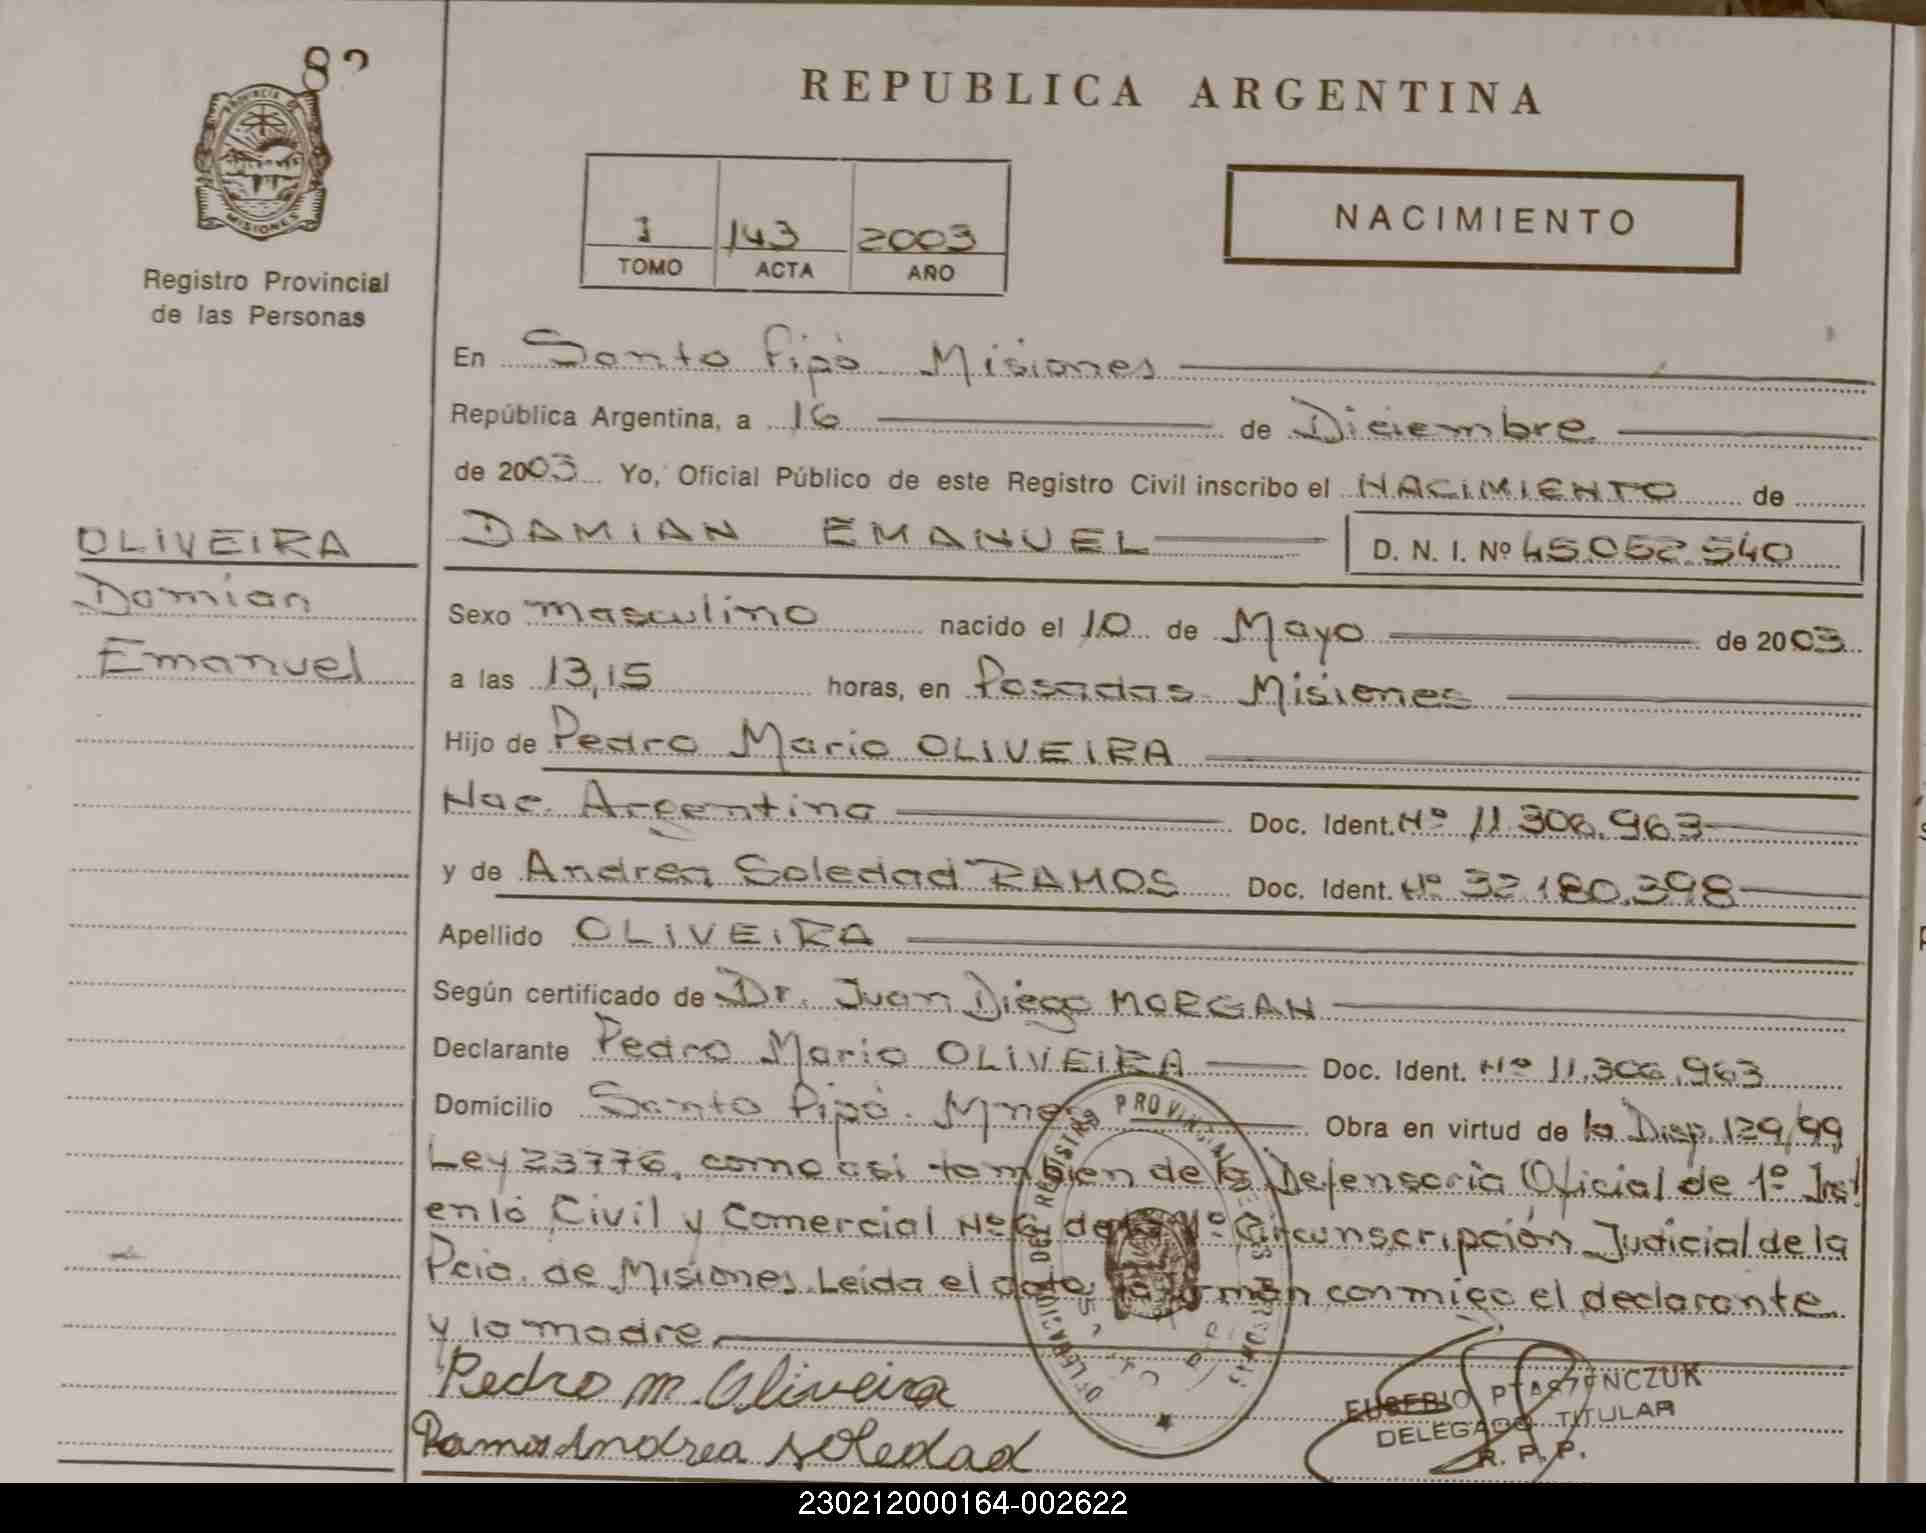 82
PROVINCIA DE
MISIONES
Registro Provincial
de las Personas
REPUBLICA ARGENTINA
1 143 2003
TOMO ACTA AÑO
NACIMIENTO
En Santo Pipó Misiones
República Argentina, a 16 de Diciembre
de 2003 Yo, Oficial Público de este Registro Civil inscribo el NACIMIENTO de
DAMIAN EMANUEL D. N. I. Nº 45.052.540
OLIVEIRA
Damian
Emanuel
Sexo masculino nacido el 10 de Mayo de 2003
a las 13,15 horas, en Posadas Misiones
Hijo de Pedro Mario OLIVEIRA
Nac. Argentina Doc. Ident. Nº 11.306.963
y de Andrea Soledad RAMOS Doc. Ident. Nº 32.180.398
Apellido OLIVEIRA
Según certificado de Dr. Juan Diego MORGAN
Declarante Pedro Mario OLIVEIRA Doc. Ident. Nº 11.306.963
Domicilio Santo Pipó. Mnes Obra en virtud de la Disp. 129/99
Ley 23776, como asi tambien de la Defensoria Oficial de 1º Inst
en lo Civil y Comercial Nº 6 de la Circunscripción Judicial de la
Pcia. de Misiones. Leida el acta, la firman conmigo el declarante
y la madre
Pedro M. Oliveira
Ramos Andrea Soledad
DELEGACION DEL REGISTRO PROVINCIAL DE LAS PERSONAS
EUSEBIO PTASZENCZUK
DELEGADO TITULAR
R. P. P.
230212000164-002622